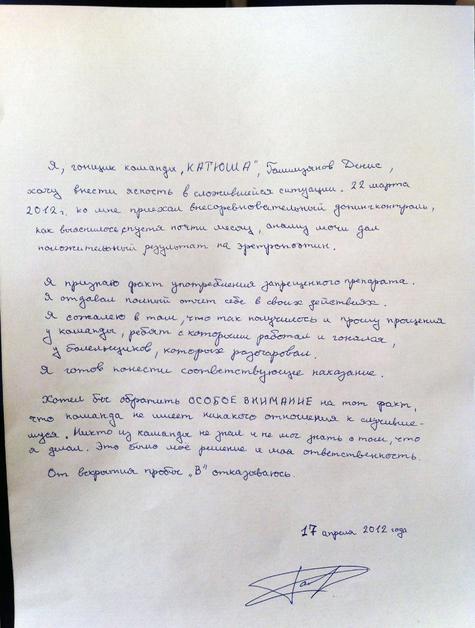 Я, гонщик команды „КАТЮША", Галимзянов Денис,
хочу внести ясность в сложившейся ситуации. 22 марта
2012г. ко мне приехал внесоревновательный допингконтроль,
как выяснилось спустя почти месяц, анализ мочи дал
положительный результат на эритропоэтин.
Я признаю факт употребления запрещенного препарата.
Я отдавал полный отчет себе в своих действиях.
Я сожалею о том, что так получилось и прошу прощения
у команды, ребят с которыми работал и гонялся,
у болельщиков, которых разочаровал.
Я готов понести соответствующее наказание.
Хотел бы обратить ОСОБОЕ ВНИМАНИЕ на тот факт,
что команда не имеет никакого отношения к случивше-
муся. Никто из команды не знал и не мог знать о том, что
я делал. Это было моё решение и моя ответственность.
От вскрытия пробы „В" отказываюсь.
17 апреля 2012 года